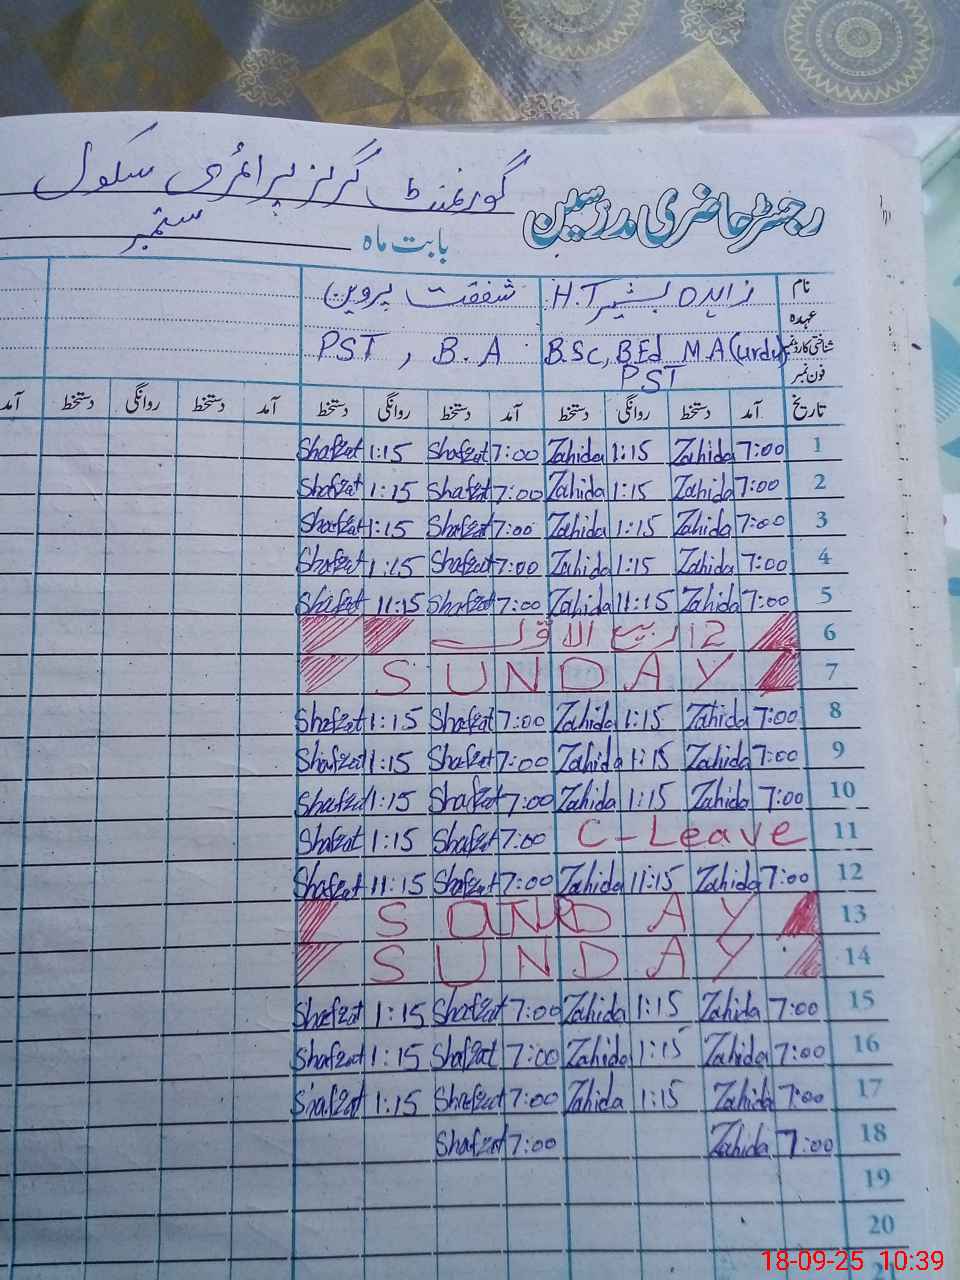 گورنمنٹ گرلز پرائمری سکول
رجسٹر حاضری مدرسین
بابت ماہ ستمبر
نام زاہدہ بشیر H.T شفقت پروین
عہدہ
شناختی کارڈ نمبر B.Sc, B.Ed M.A (Urdu) PST, B.A
فون نمبر PST
تاریخ آمد دستخط روانگی دستخط آمد دستخط روانگی دستخط آمد دستخط روانگی دستخط آمد
1 7:00 Zahida 1:15 Zahida 7:00 Shafzat 1:15 Shafzat
2 7:00 Zahida 1:15 Zahida 7:00 Shafzat 1:15 Shafzat
3 7:00 Zahida 1:15 Zahida 7:00 Shafzat 1:15 Shafzat
4 7:00 Zahida 1:15 Zahida 7:00 Shafzat 1:15 Shafzat
5 7:00 Zahida 11:15 Zahida 7:00 Shafzat 11:15 Shafzat
6 12 ربیع الاول
7 SUNDAY
8 7:00 Zahida 1:15 Zahida 7:00 Shafzat 1:15 Shafzat
9 7:00 Zahida 1:15 Zahida 7:00 Shafzat 1:15 Shafzat
10 7:00 Zahida 1:15 Zahida 7:00 Shafzat 1:15 Shafzat
11 C-Leave 7:00 Shafzat 1:15 Shafzat
12 7:00 Zahida 11:15 Zahida 7:00 Shafzat 11:15 Shafzat
13
14 SUNDAY
15 7:00 Zahida 1:15 Zahida 7:00 Shafzat 1:15 Shafzat
16 7:00 Zahida 1:15 Zahida 7:00 Shafzat 1:15 Shafzat
17 7:00 Zahida 1:15 Zahida 7:00 Shafzat 1:15 Shafzat
18 7:00 Zahida 7:00 Shafzat
19
20
21
18-09-25 10:39